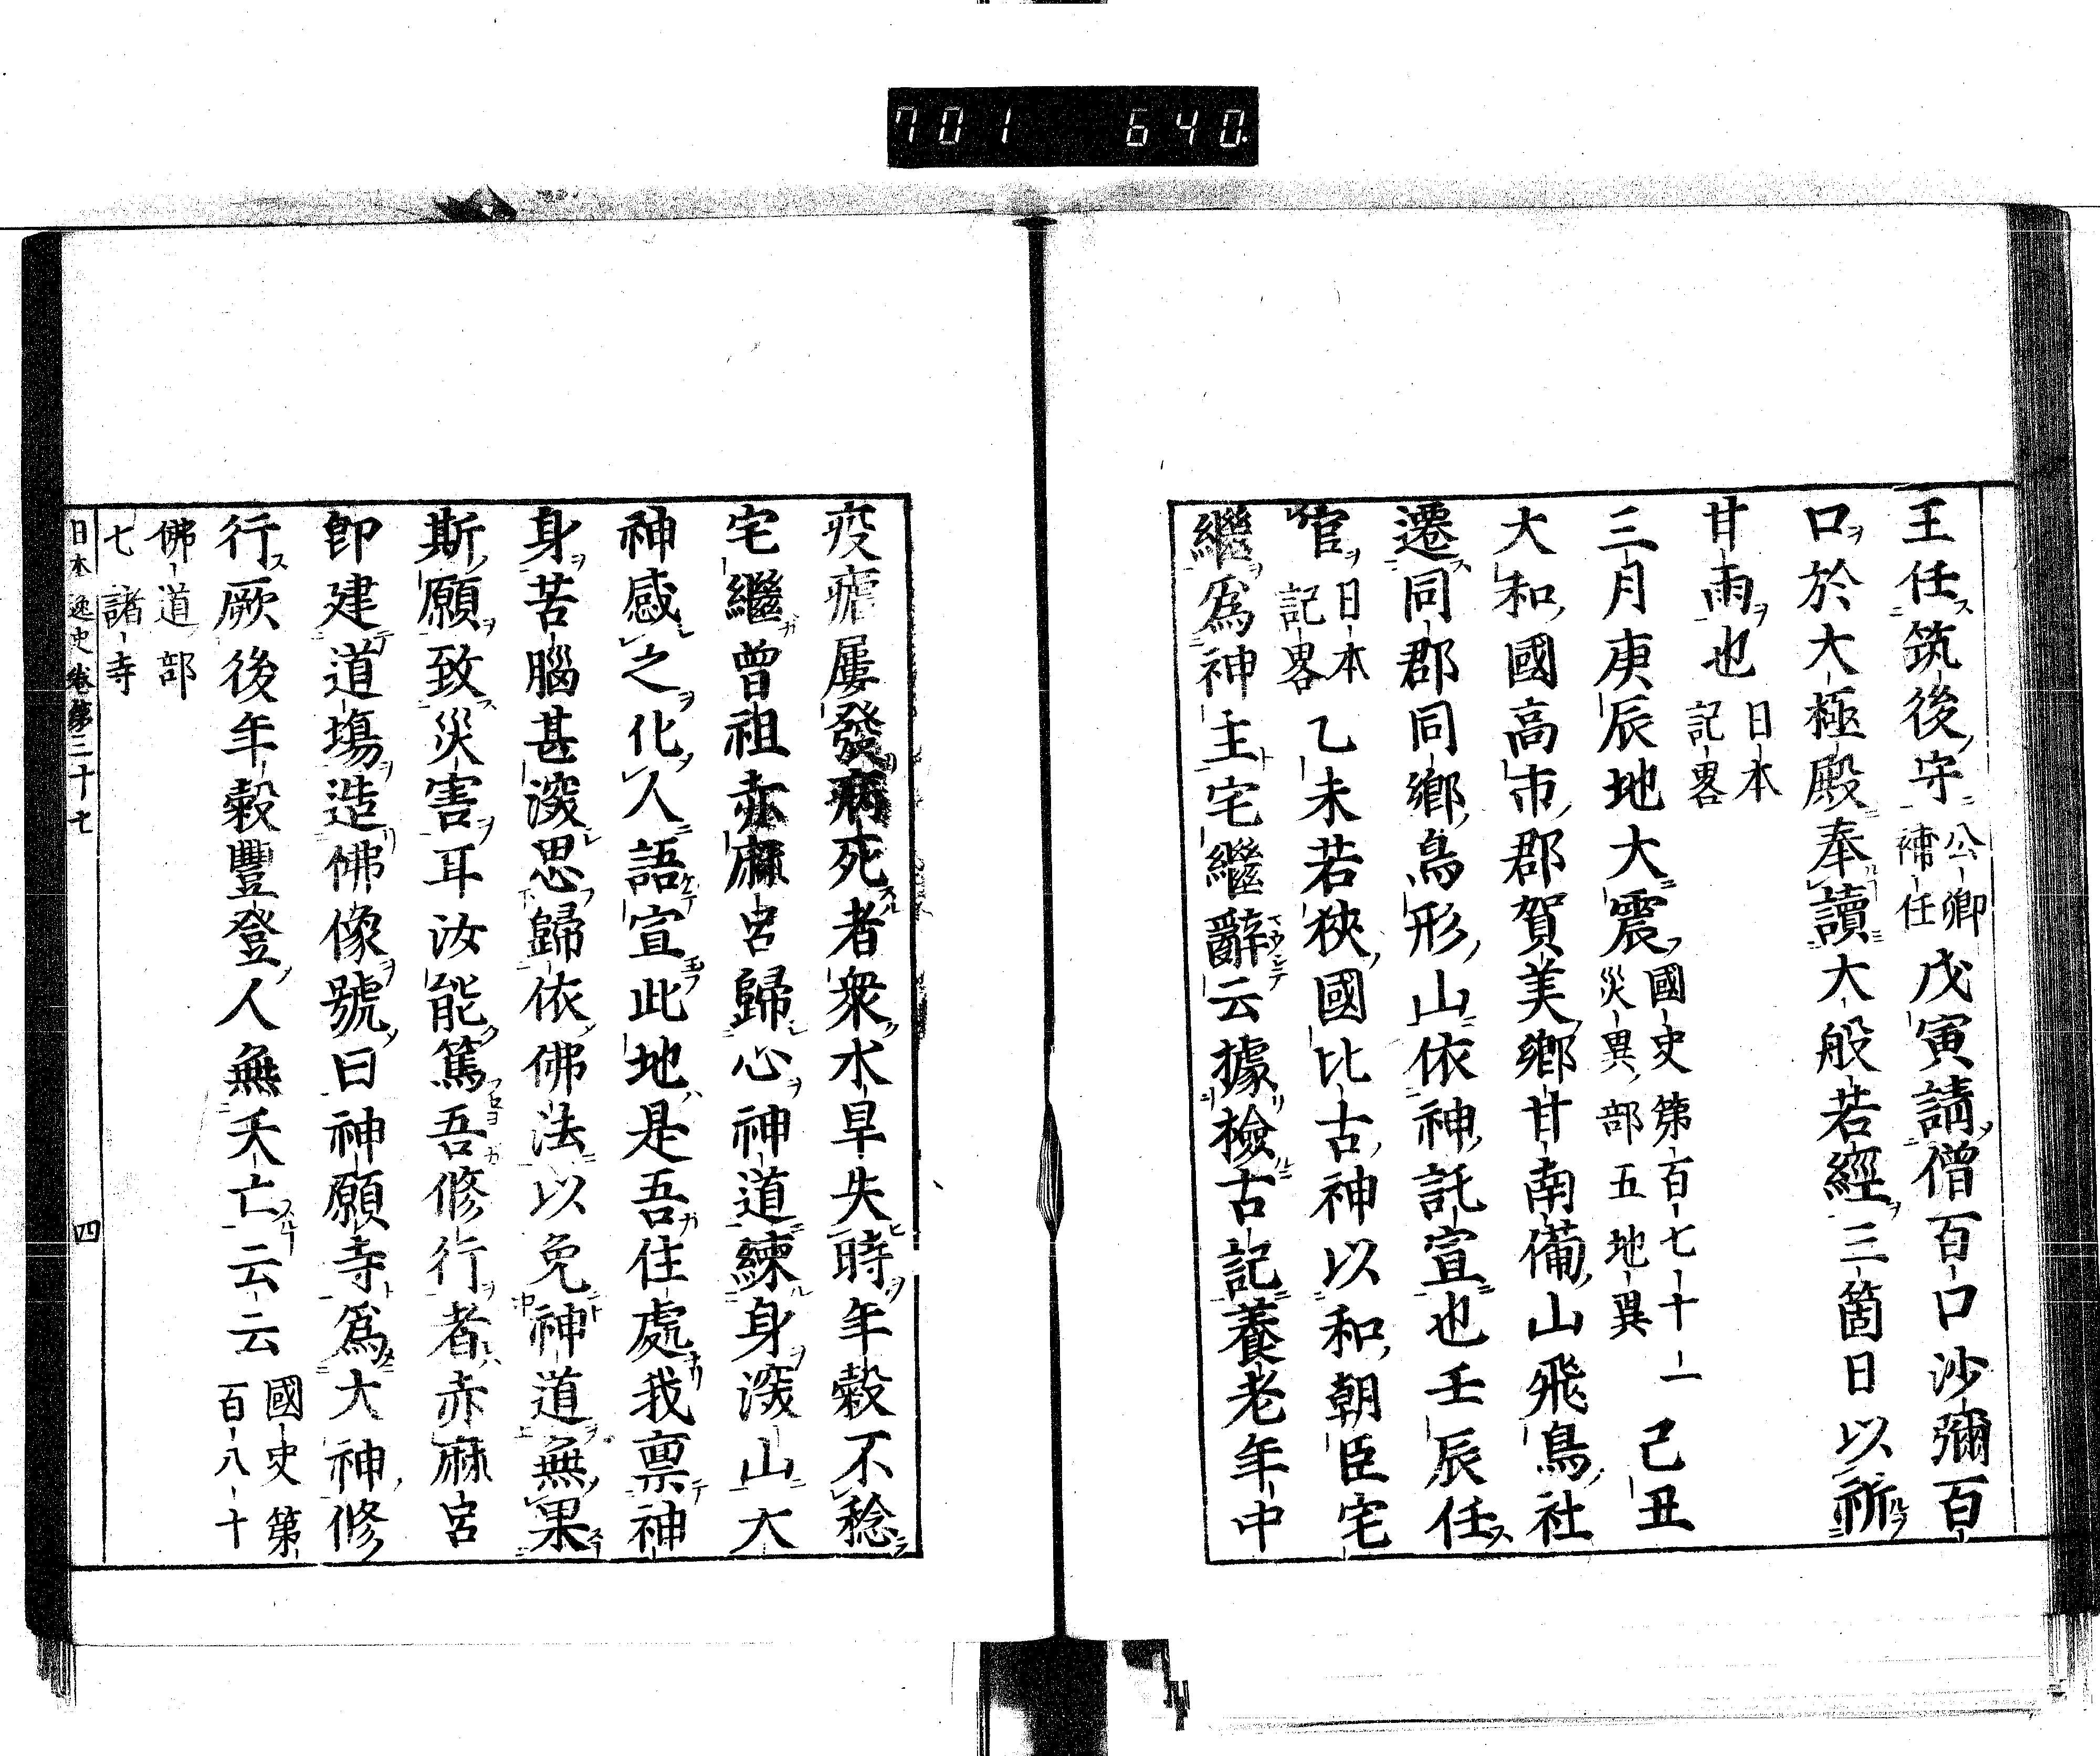 701 640
王任筑後守公卿補任戊寅請僧百口沙彌百
口於大極殿奉讀大般若經三箇日以祈
甘雨也日本記畧
三月庚辰地大震國史第百七十一災異部五地異己丑
大和國高市郡賀美郷甘南備山飛鳥社
遷同郡同郷鳥形山依神託宣也壬辰任
官日本記畧乙未若狹國比古神以和朝臣宅
繼爲神主宅繼辭云據檢古記養老年中
疫癘屢發病死者衆水旱失時年穀不稔
宅繼曾祖赤麻呂歸心神道練身深山大
神感之化人語宣此地是吾住處我稟神
身苦腦甚深思歸依佛法以免神道無果
斯願致災害耳汝能篤吾修行者赤麻呂
即建道場造佛像號曰神願寺爲大神修
行厥後年穀豐登人無夭亡云云國史第百八十
佛道部
七諸寺
日本逸史卷第三十七 四